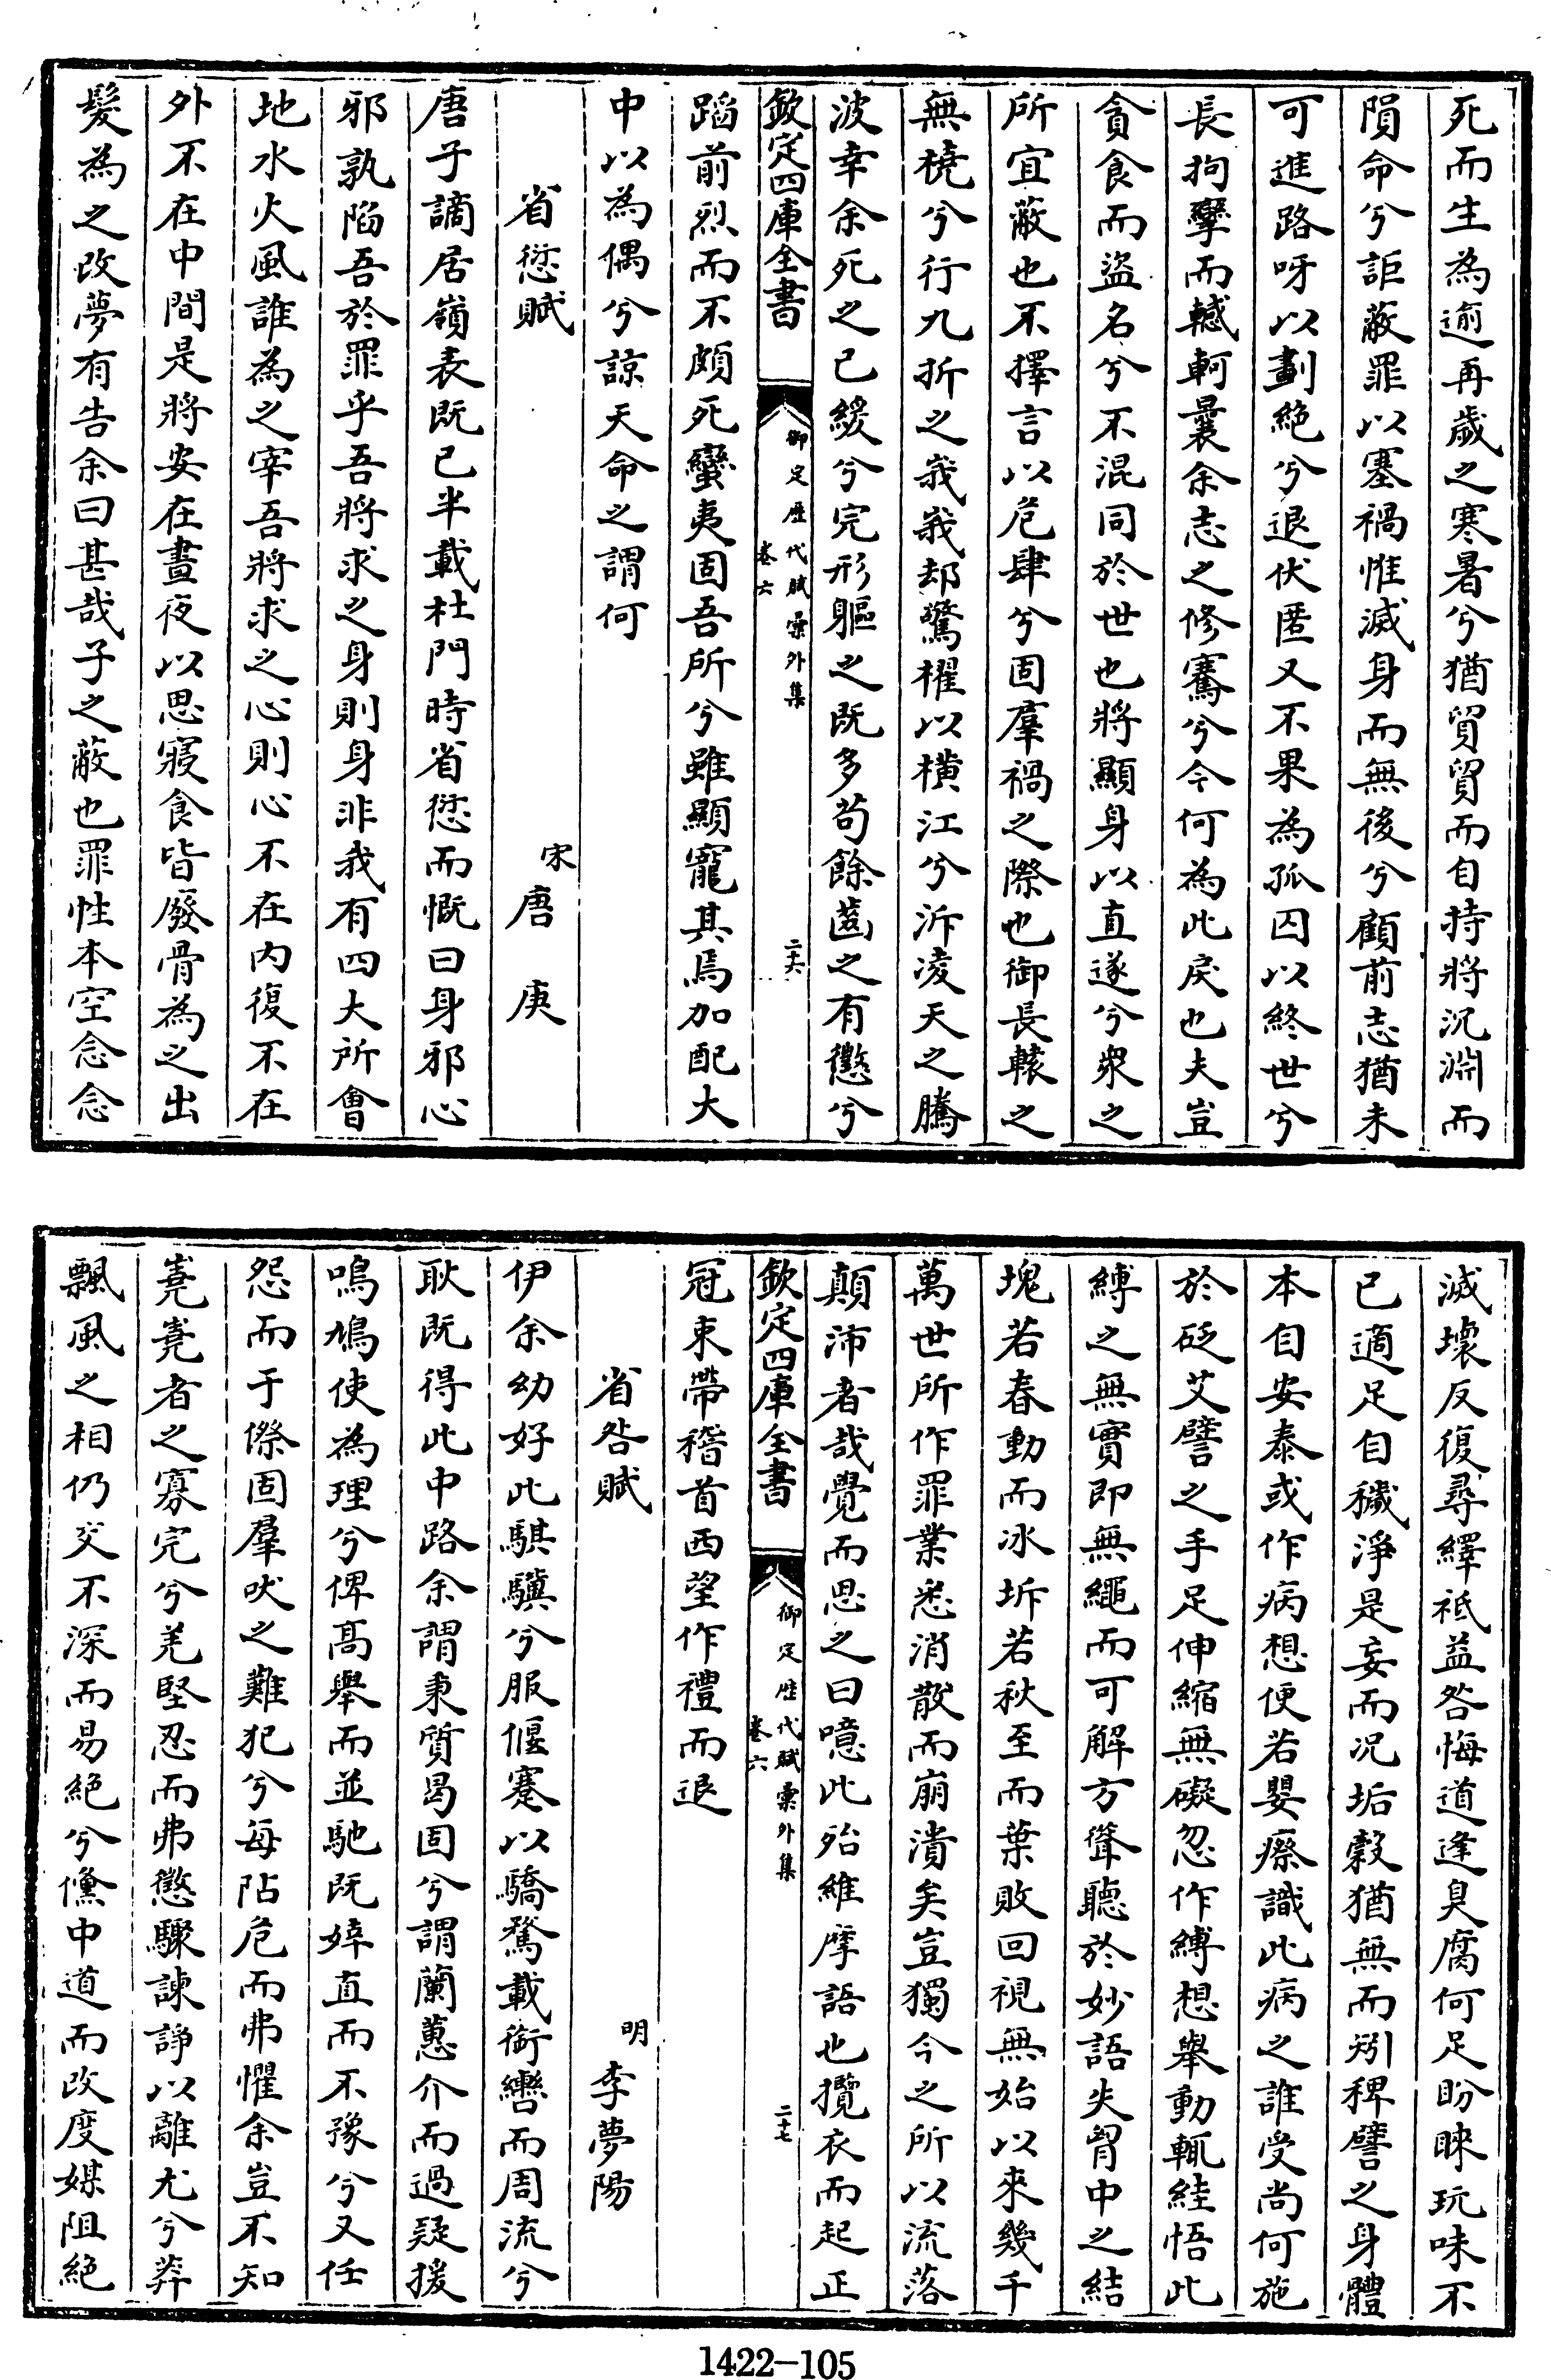 死而生為逾再歲之寒暑兮猶貿貿而自持將沉淵而
隕命兮詎蔽罪以塞禍惟滅身而無後兮顧前志猶未
可進路呀以劃絶兮退伏匿又不果為孤囚以終世兮
長拘攣而轗軻曩余志之修蹇兮今何為此戾也夫豈
貪食而盜名兮不混同於世也將顯身以直遂兮衆之
所宜蔽也不擇言以危肆兮固羣禍之際也御長轅之
無橈兮行九折之峩峩却驚櫂以橫江兮泝凌天之騰
波幸余死之已緩兮完形軀之既多苟餘齒之有懲兮
欽定四庫全書
御定歷代賦彙外集
卷六
二十六
蹈前烈而不頗死蠻夷固吾所兮雖顯寵其焉加配大
中以為偶兮諒天命之謂何
省愆賦
宋唐庚
唐子謫居嶺表既已半載杜門時省愆而慨曰身邪心
邪孰陷吾於罪乎吾將求之身則身非我有四大所會
地水火風誰為之宰吾將求之心則心不在内復不在
外不在中間是將安在晝夜以思寢食皆廢骨為之出
髮為之改夢有告余曰甚哉子之蔽也罪性本空念念
滅壞反復尋繹祗益咎悔道逢臭腐何足盼睞玩味不
已適足自穢淨是妄而况垢穀猶無而矧稗譬之身體
本自安泰或作病想便若嬰瘵識此病之誰受尚何施
於砭艾譬之手足伸縮無礙忽作縛想舉動輒絓悟此
縛之無實即無繩而可解方聳聽於妙語失胷中之結
塊若春動而冰坼若秋至而葉敗回視無始以來幾千
萬世所作罪業悉消散而崩潰矣豈獨今之所以流落
顛沛者哉覺而思之曰噫此殆維摩語也攬衣而起正
欽定四庫全書
御定歷代賦彙外集
卷六
二十七
冠束帶稽首西望作禮而退
省咎賦
明李夢陽
伊余幼好此騏驥兮服偃蹇以驕騖載銜轡而周流兮
耿既得此中路余謂秉質曷固兮謂蘭蕙介而過疑援
鳴鳩使為理兮俾高舉而並馳既婞直而不豫兮又任
怨而于傺固羣吠之難犯兮每阽危而弗懼余豈不知
嶤嶤者之寡完兮羌堅忍而弗懲驟諫諍以離尤兮羿
飄風之相仍交不深而易絶兮儻中道而改度媒阻絶
1422-105